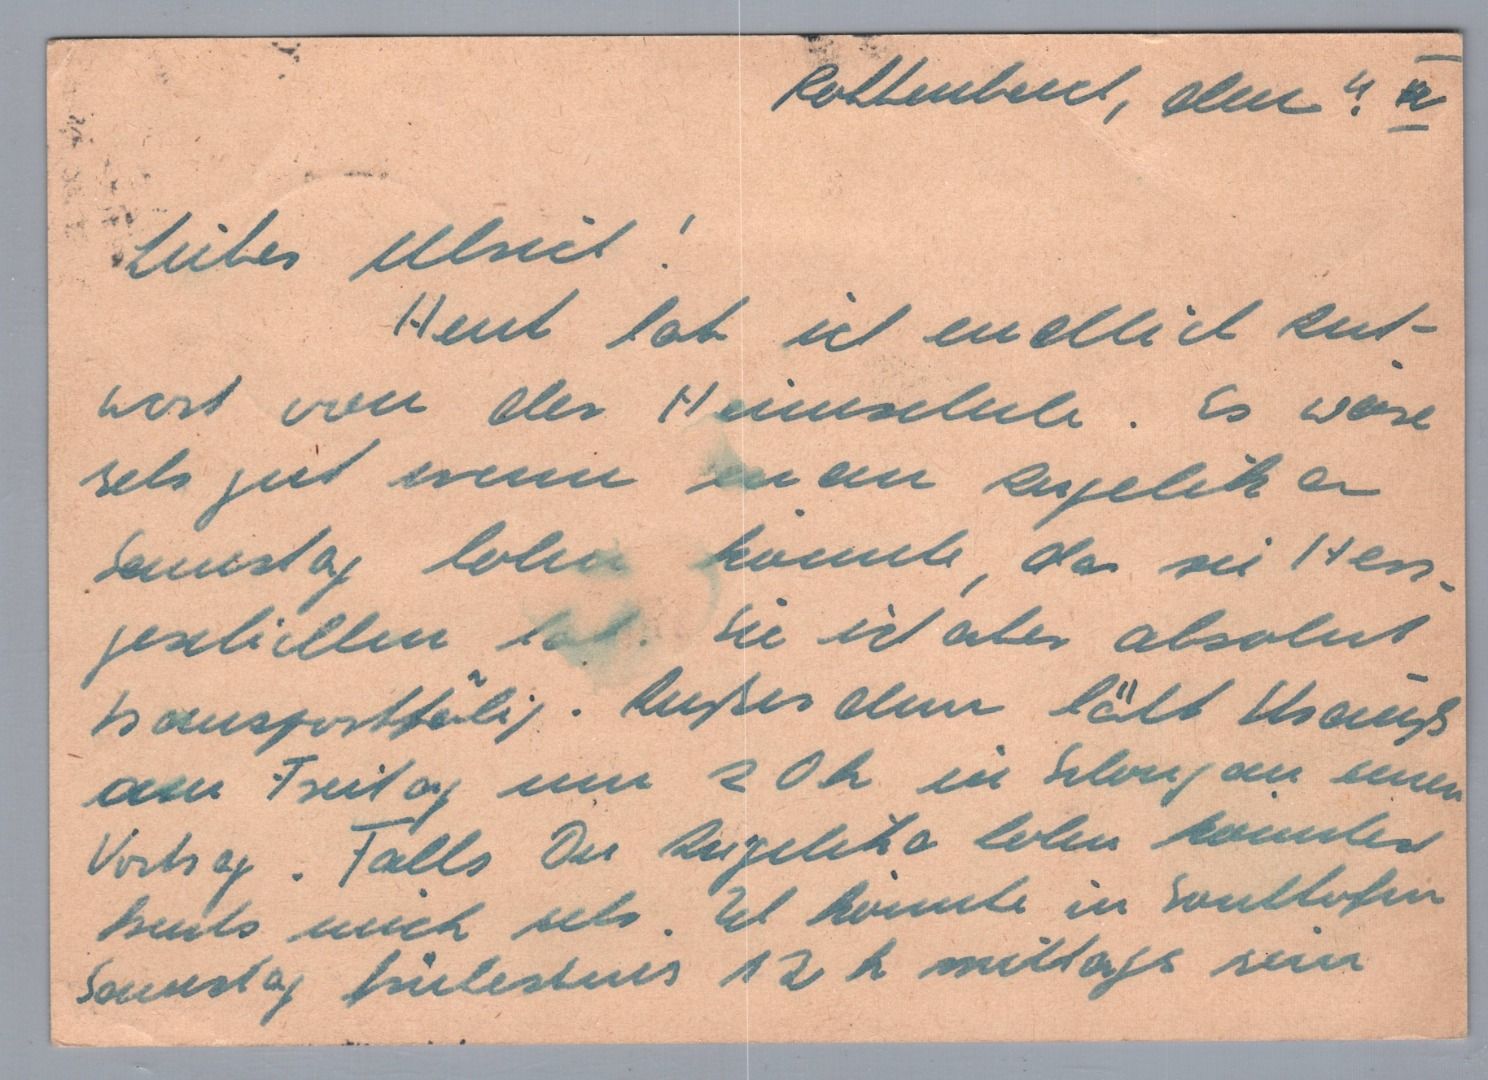 Rottenbuch, den 4. IV
Lieber Ulrich!
Heut hab ich endlich Ant-
wort von der Heimschule. Es wäre
sehr gut wenn man Angelika
Samstag holen könnte, da sie
geschlichen hat. Sie ist aber absolut
transportfähig. Außerdem hält
am Freitag um 20 h in Schongau einen
Vortrag. Falls Du Angelika holen könntest
freuts mich sehr. Ich könnte in Sonthofen
Samstag frühestens 12 h mittags sein